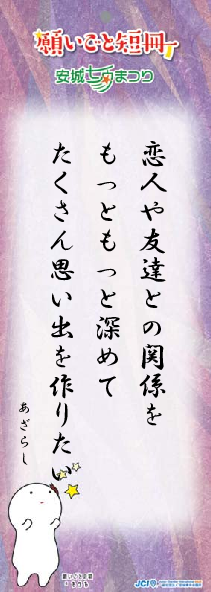 願いごと短冊
安城七夕まつり
恋人や友達との関係を
もっともっと深めて
たくさん思い出を作りたい
あざらし
JCI